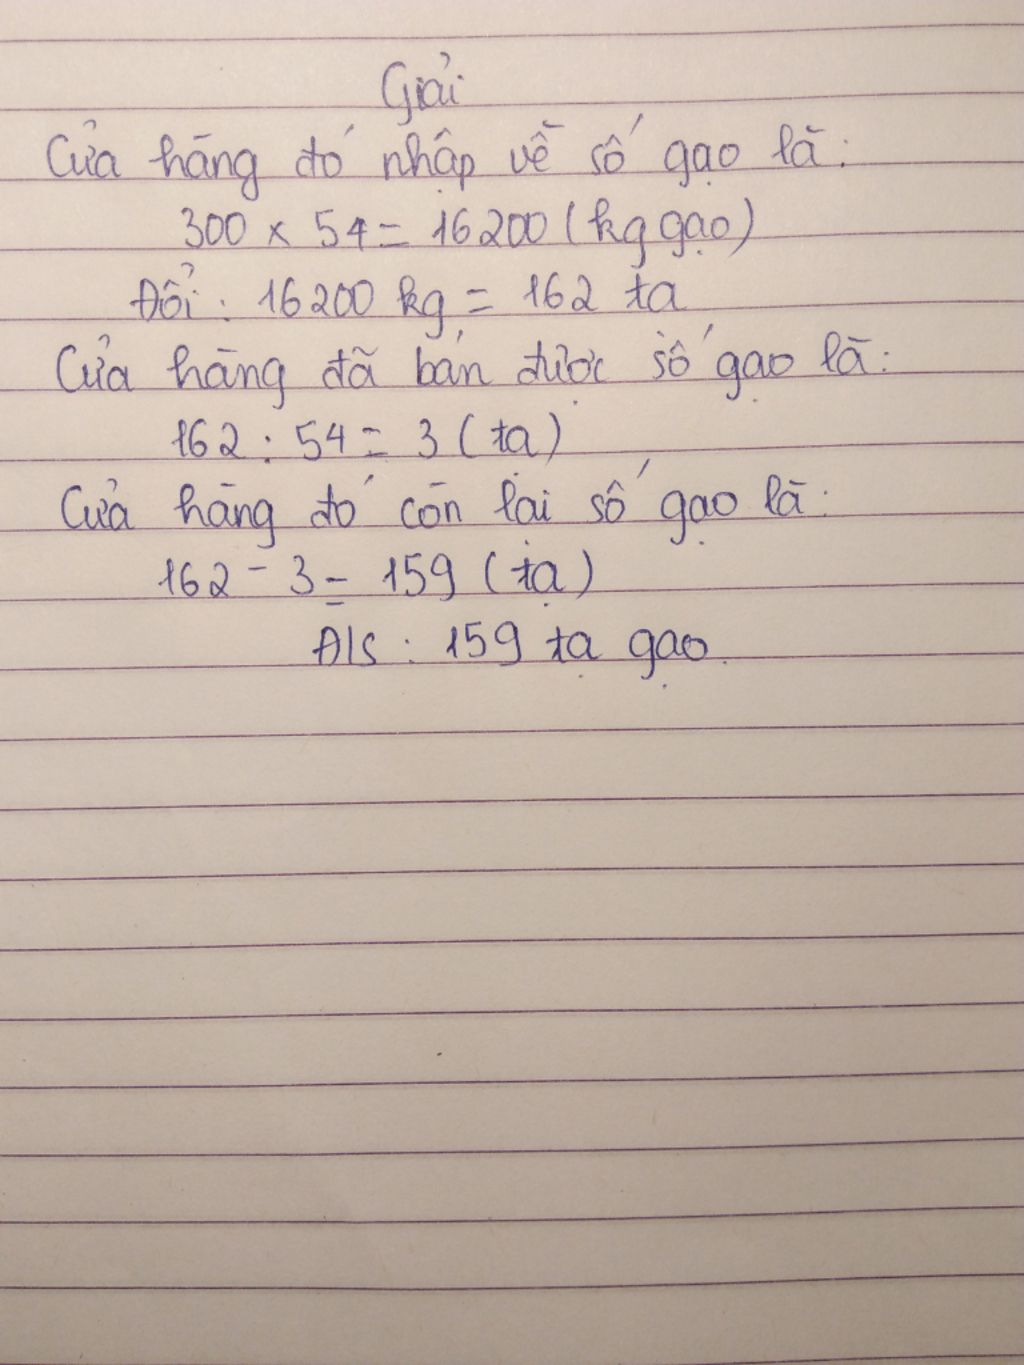 Giải
Cửa hàng đó nhập về số gạo là:
300 x 54 = 16200 (kg gạo)
Đổi: 16200 kg = 162 tạ
Cửa hàng đã bán được số gạo là:
162 : 54 = 3 (tạ)
Cửa hàng đó còn lại số gạo là:
162 - 3 = 159 (tạ)
Đ/s: 159 tạ gạo.